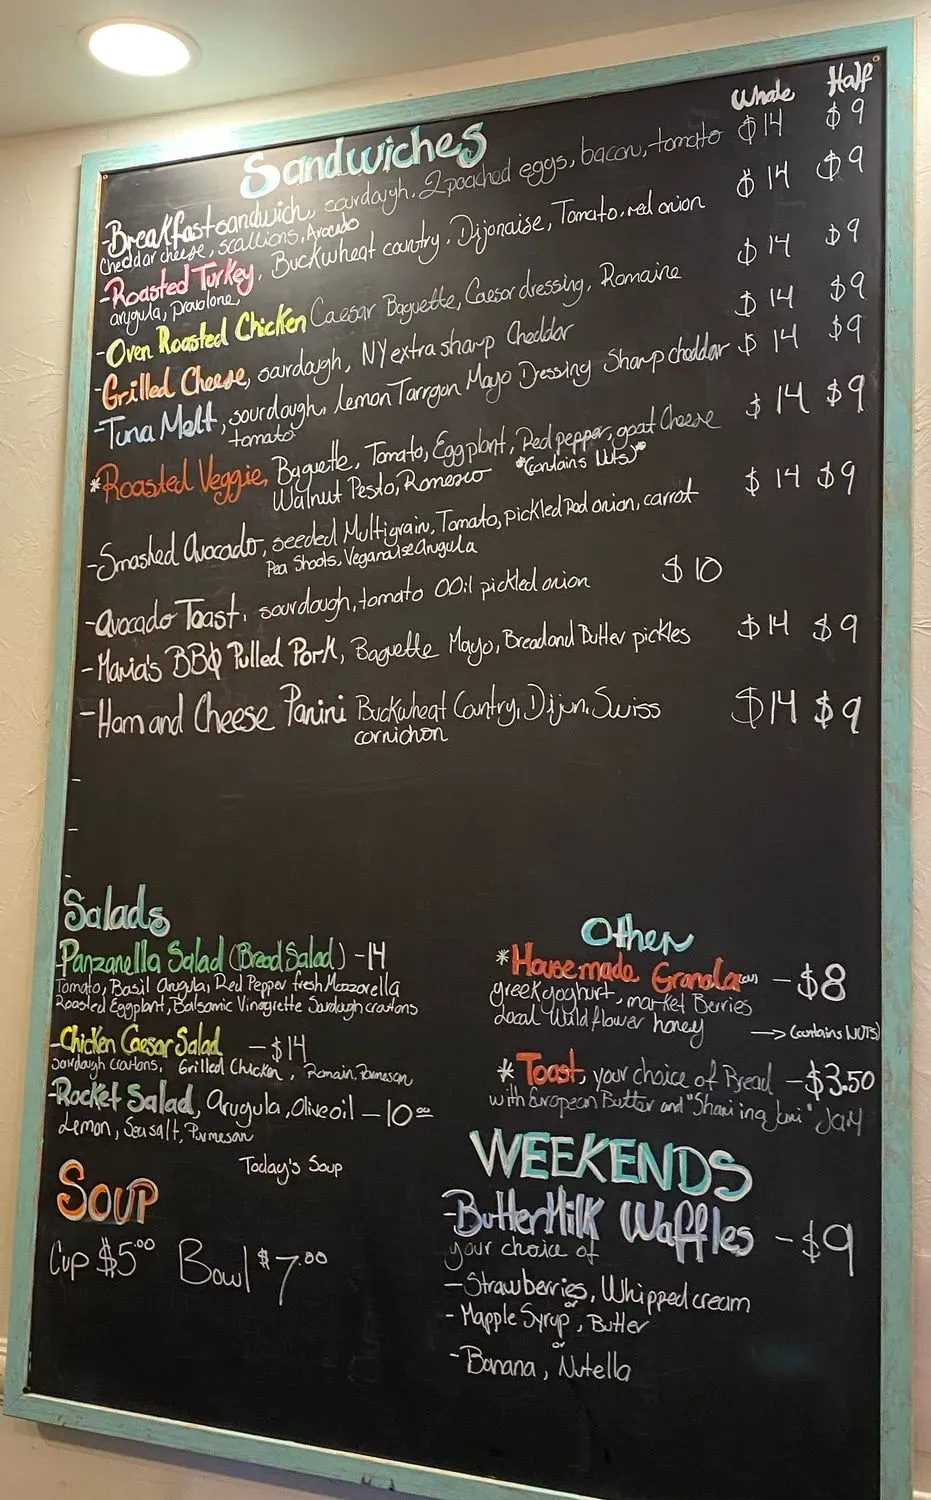 Whole Half
Sandwiches
-Breakfast sandwich, sourdough, 2 poached eggs, bacon, tomato $14 $9
Cheddar cheese, scallions, Avocado
-Roasted Turkey, Buckwheat country, Dijonaise, Tomato, red onion $14 $9
arugula, provolone,
-Oven Roasted Chicken Caesar Baguette, Caesar dressing, Romaine $14 $9
-Grilled Cheese, sourdough, NY extra sharp Cheddar $14 $9
-Tuna Melt, sourdough, lemon Tarragon Mayo Dressing Sharp cheddar $14 $9
tomato
*Roasted Veggie, Baguette, Tomato, Eggplant, Red pepper, goat Cheese $14 $9
Walnut Pesto, Romesco *(contains Nuts)*
-Smashed Avocado, seeded Multigrain, Tomato, pickled Red onion, carrot $14 $9
Pea Shoots, Veganaise Arugula
-Avocado Toast, sourdough, tomato OOil pickled onion $10
-Maria's BBQ Pulled Pork, Baguette Mayo, Bread and Butter pickles $14 $9
-Ham and Cheese Panini Buckwheat Country, Dijon, Swiss $14 $9
cornichon
-
-
-
Salads
-Panzanella Salad (Bread Salad) -14
Tomato, Basil Arugula, Red Pepper fresh Mozzorella
Roasted Eggplant, Balsamic Vinagrette Sourdough croutons
-Chicken Caesar Salad -$14
Sourdough croutons, Grilled Chicken, Romain, Parmesan
-Rocket Salad, Arugula, Olive oil -10.00
Lemon, Sea salt, Parmesan
Today's Soup
Soup
Cup $5.00 Bowl $7.00
Other
*Housemade Granola -$8
greek yoghurt, market Berries
Local Wildflower honey → (contains NUTS)
*Toast, your choice of Bread -$3.50
with European Butter and " Jam" Jam
WEEKENDS
-ButterMilk Waffles -$9
your choice of
-Strawberries, Whipped cream
or
-Mapple Syrup, Butter
or
-Banana, Nutella